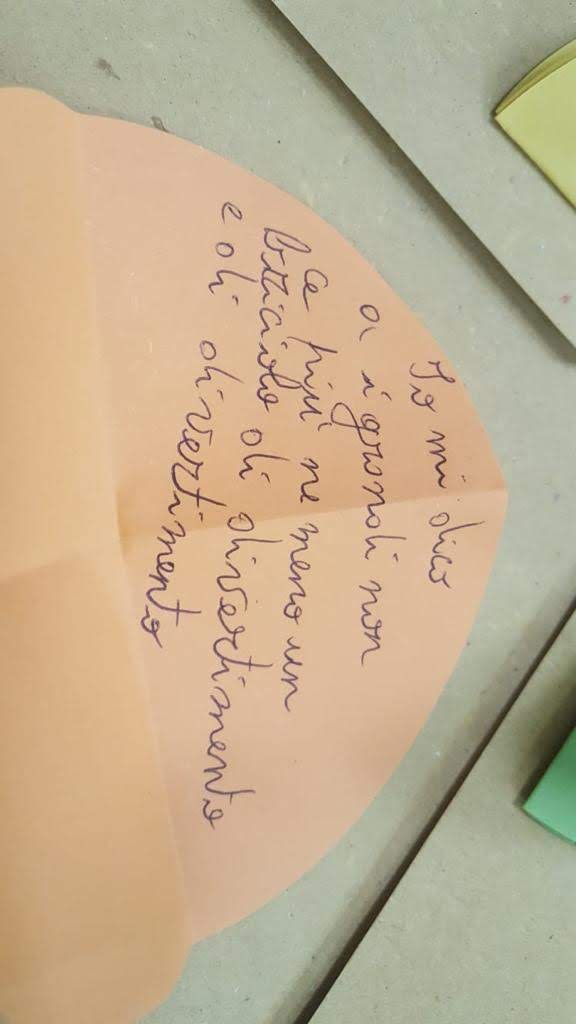 Io mi dico
a i grandi non
ce più ne meno un
briciolo di divertimento
e di divertimento